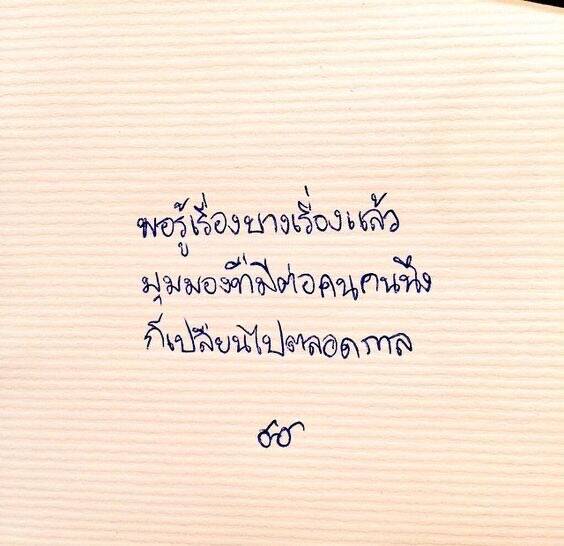 พอรู้เรื่องบางเรื่องแล้ว
มุมมองที่มีต่อคนคนนึง
ก็เปลี่ยนไปตลอดกาล